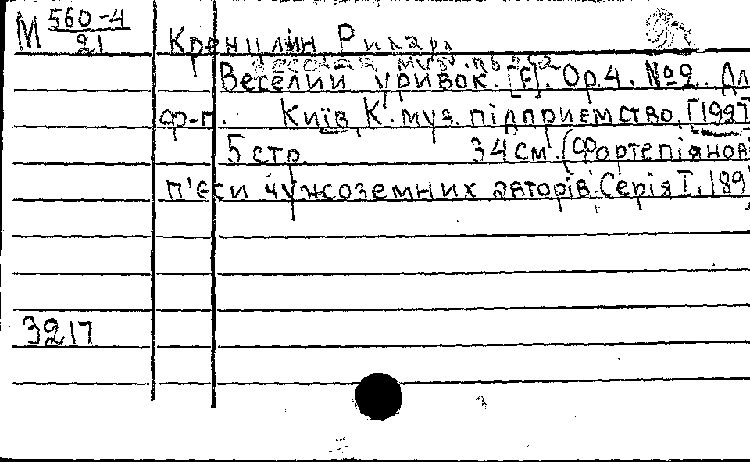 М 560-4
21
Кренцлін Рихард
Веселий уривок. [F]. Ор.4. №2. Дл
ф-п. Київ, К. муз. підприємство, [1927
5 стр 34 см. (Фортепіянові
п'єси чужоземних авторів. Серія I. 189
3217